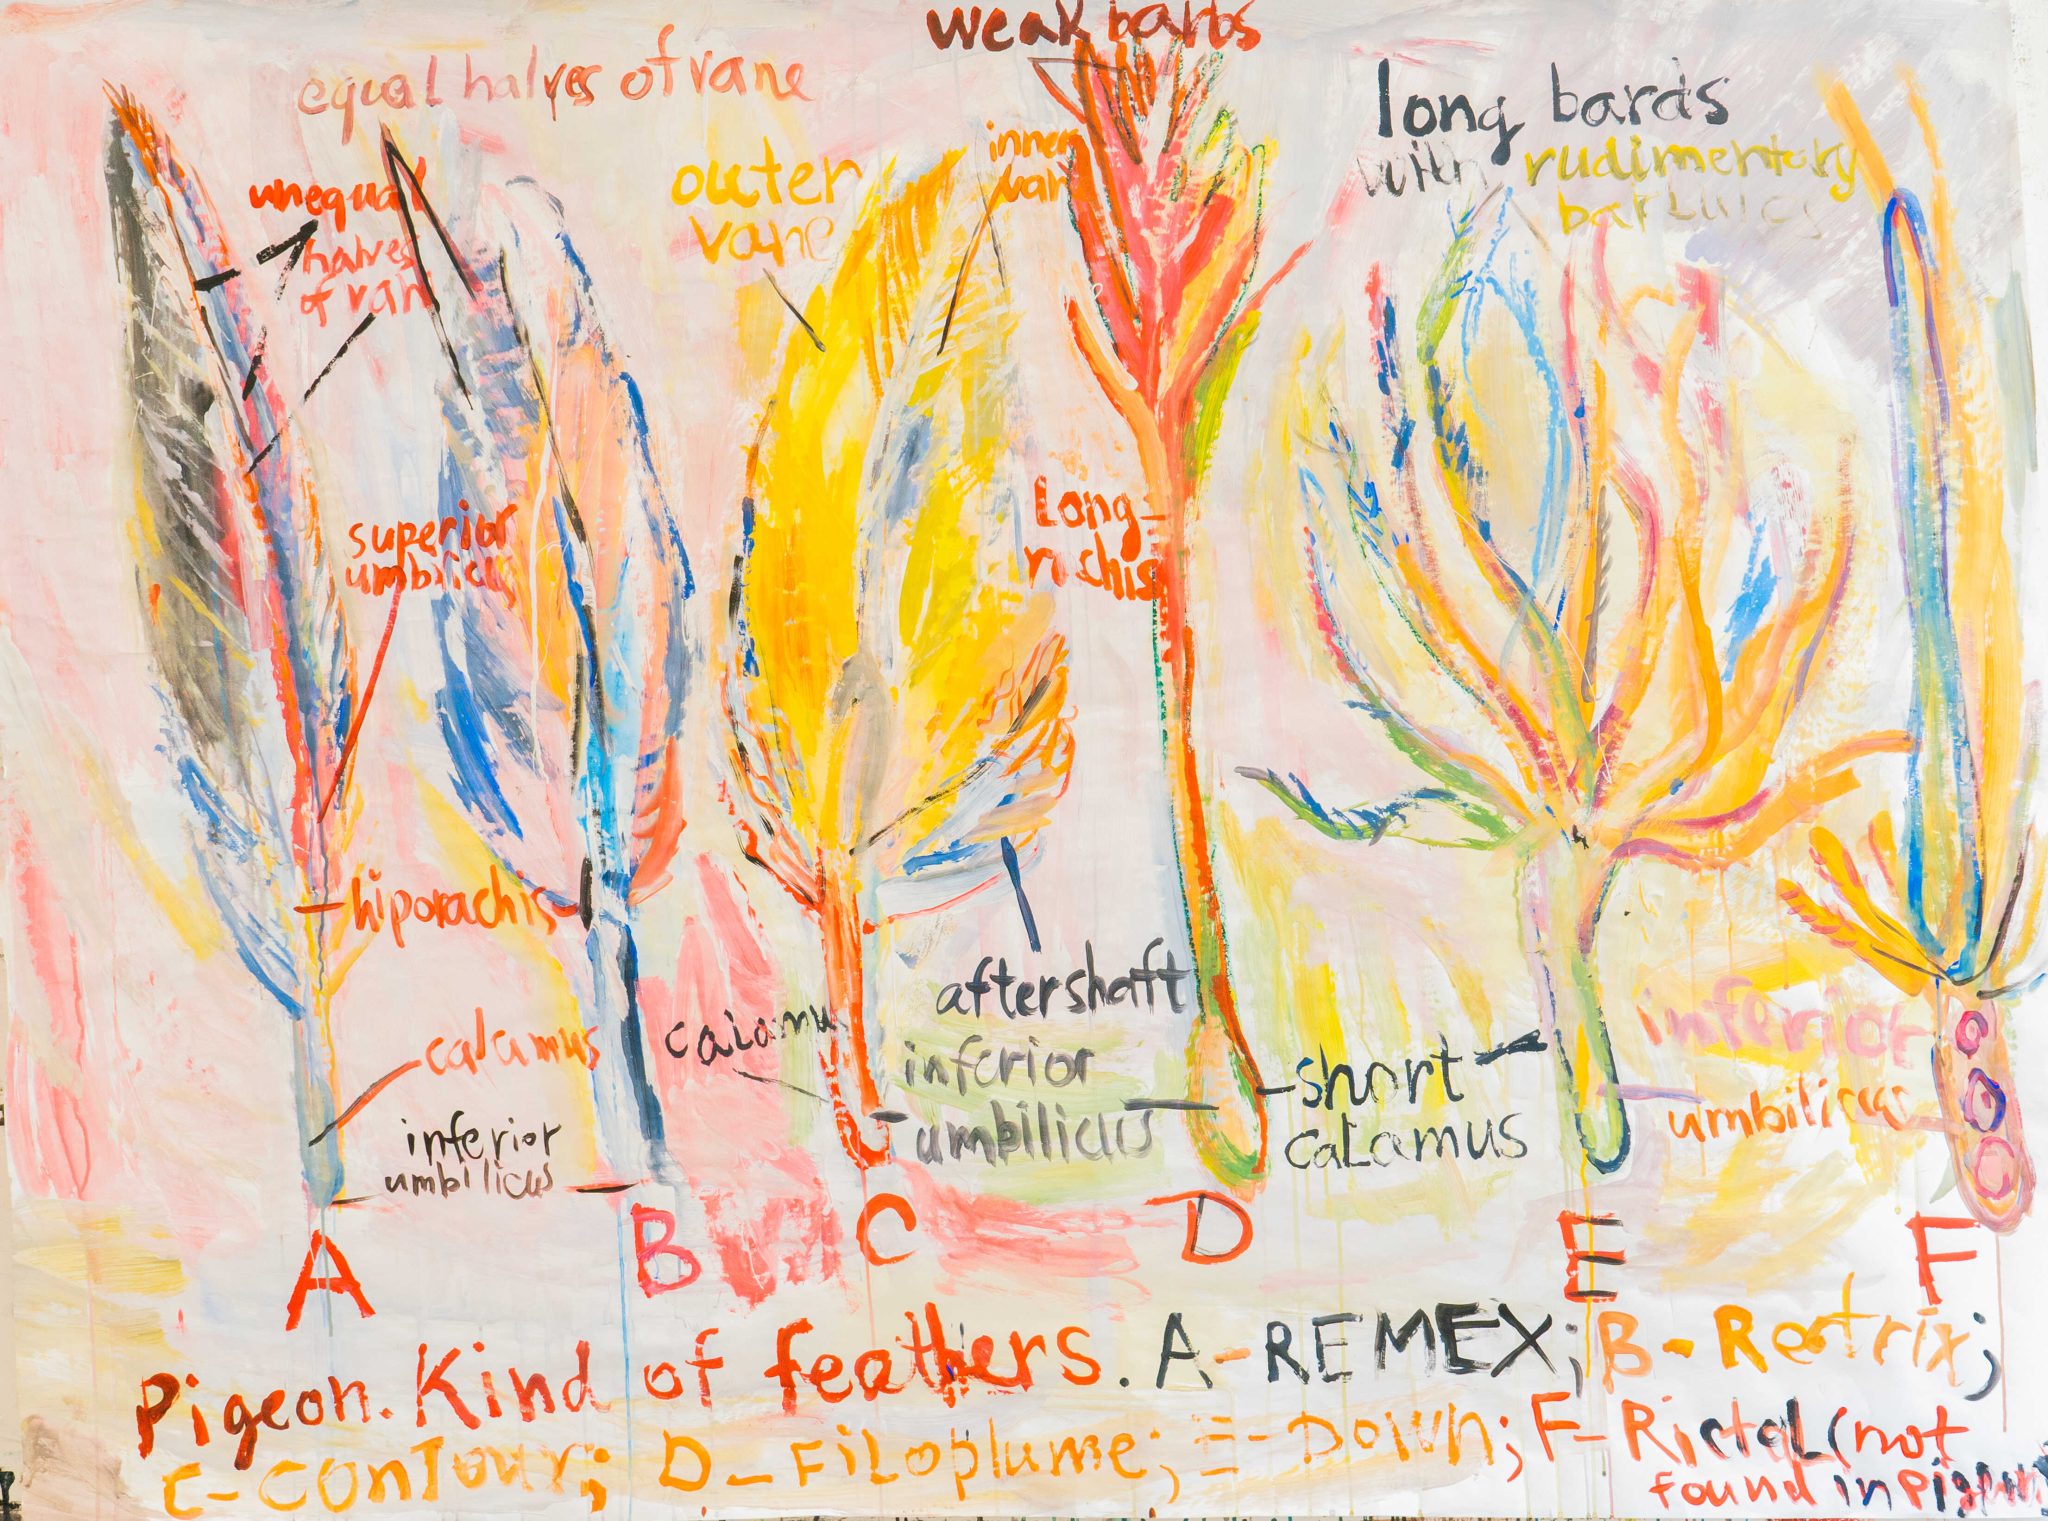 weak barbs
equal halves of vane
long bards
with rudimentary
outer
vane
inner
van
unequal
halves
of van
Long
rachis
superior
umbilicus
hiporachis
aftershaft
calamus
calamu
inferior
umbilicus
short
calamus
inferior
umbilicus
inferior
umbilicus
A
B
C
D
E
F
Pigeon. Kind of feathers. A-REMEX; B-Rectrix;
C-Contour; D-Filoplume; E-Down; F-Rictal (not
found in Pigeon